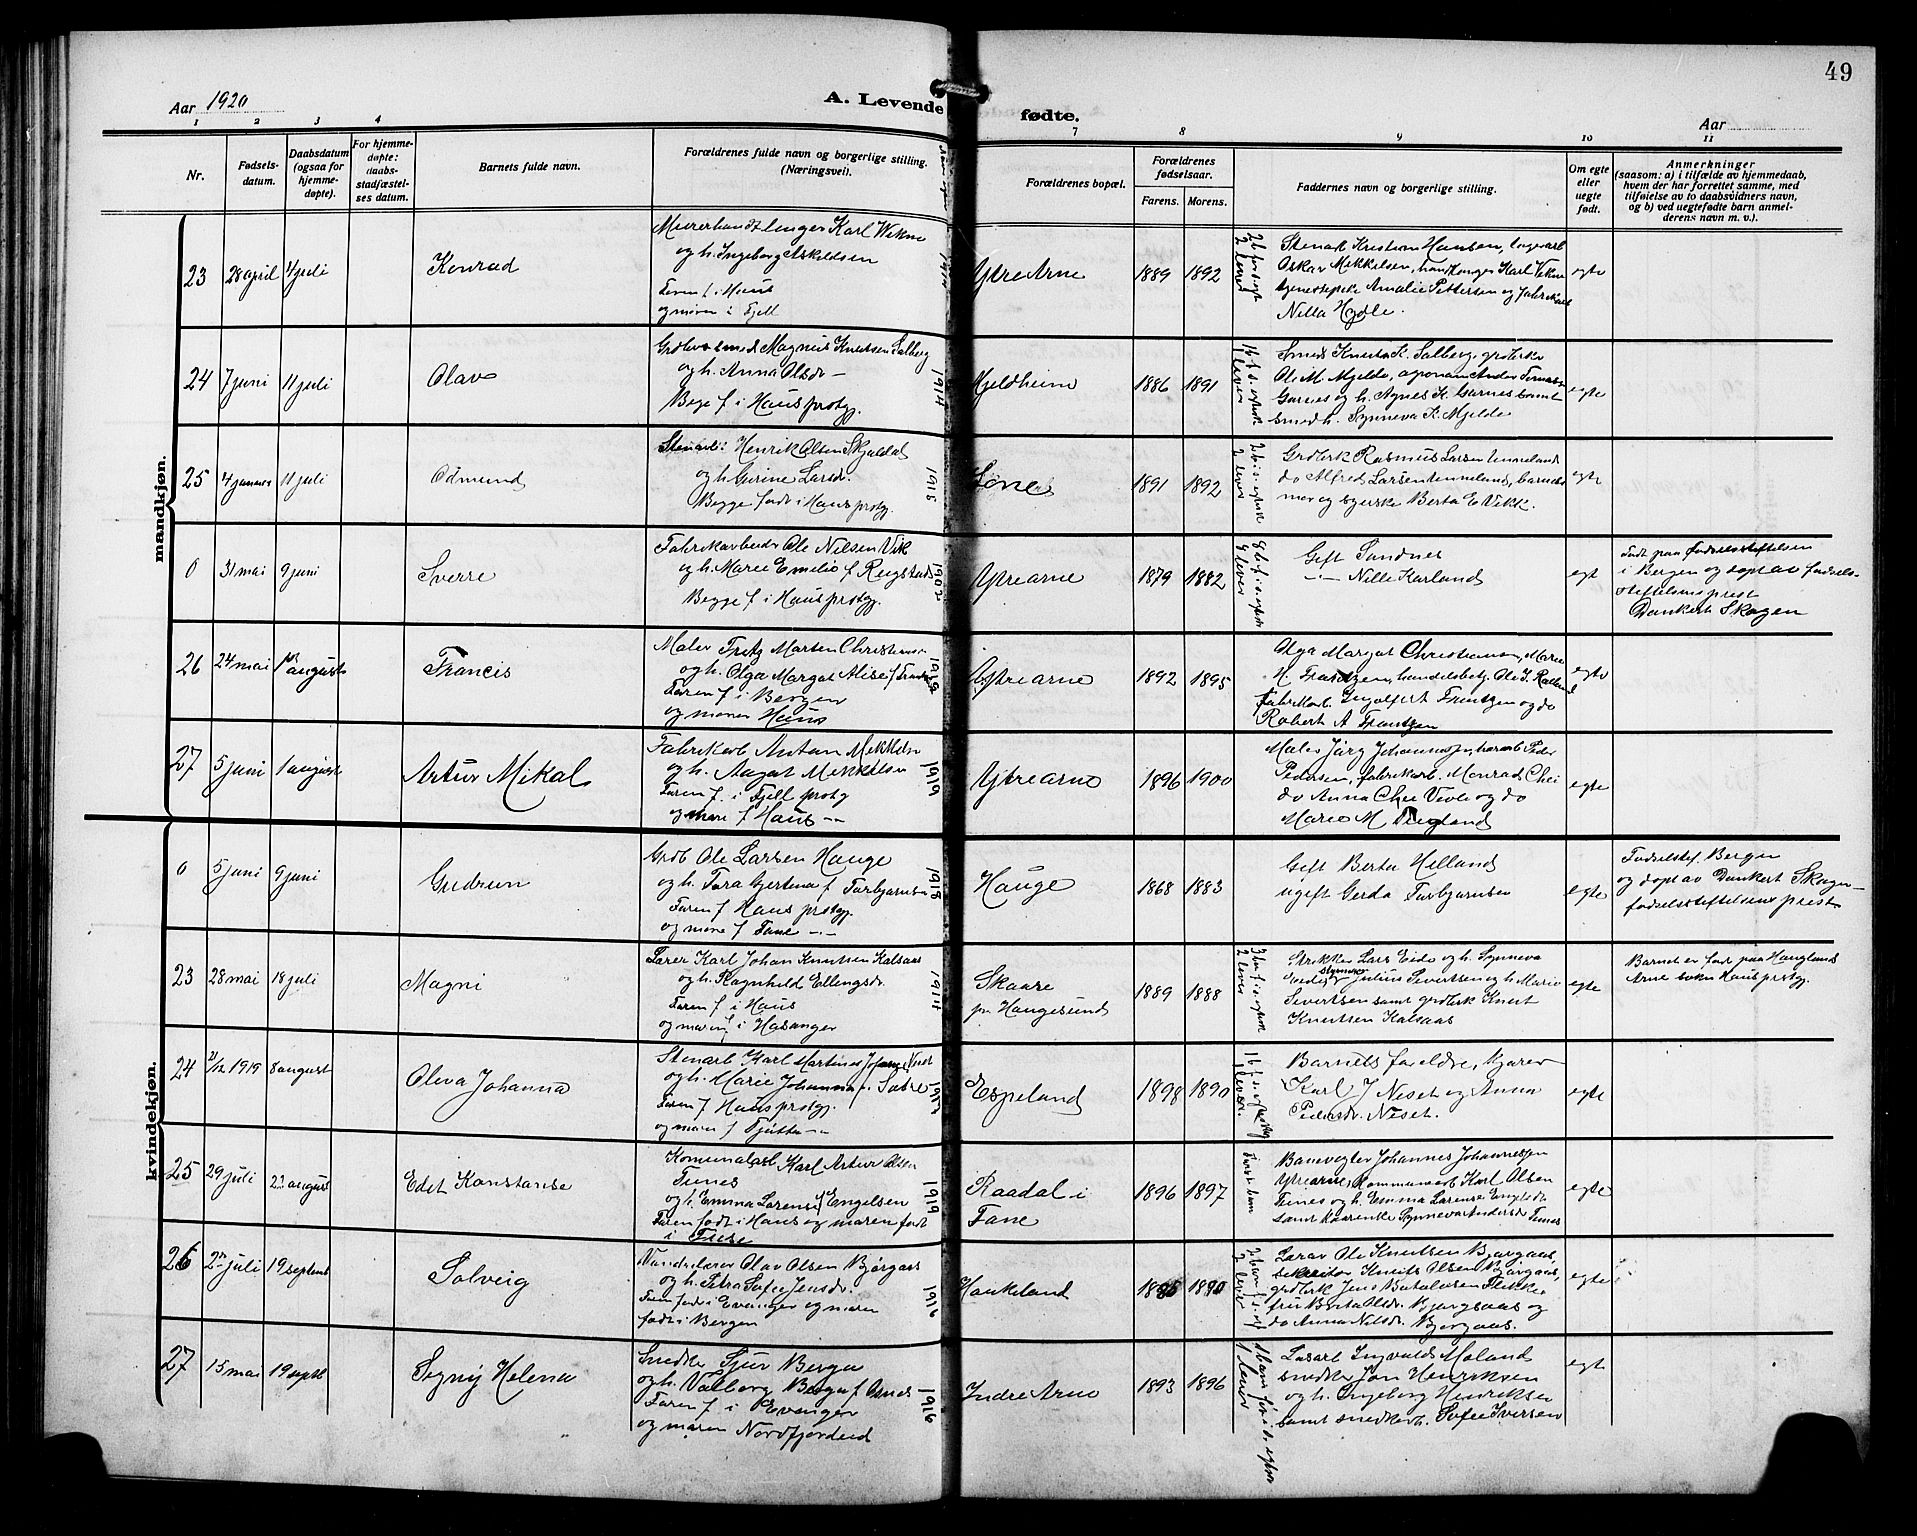 49
Aar 1920
A. Levende
fødte.
Aar
1 2 3 4
7 8 9 10 11
Nr.
Fødsels-
datum.
Daabsdatum
(ogsaa for
hjemme-
døpte).
For hjemme-
døpte:
daabs-
stadfæstel-
ses datum.
Barnets fulde navn.
Forældrenes fulde navn og borgerlige stilling.
(Næringsvei).
Forældrenes bopæl.
Forældrenes
fødselsaar.
Farens. Morens.
Faddernes navn og borgerlige stilling.
Om egte
eller
uegte
født.
Anmerkninger
(saasom: a) i tilfælde av hjemmedaab,
hvem der har forrettet samme, med
tilføielse av to daabsvidners navn,
og b) ved uegtefødte barn anmel-
derens navn m. v.).
mandkjøn.
23 28 april 4 juli Konrad
Murerhandtlanger Karl Wekne
og h. Ingeborg Askeldsen
Faren f. i Haus
og moren i Fjell
Ytre Arne 1889 1892
Stenarb. Kristian Hansen,
Oskar Mikkelsen, handlanger Karl Vekne
tjenestepike Amalie Pettersen og fabrikarb
Nilla Hydle.
egte
24 7 juni 11 juli Olav
Magnus Knutsen Salberg
og h. Anna Olsdr —
Bege f i Haus prstg.
1914
Mjeldheim 1886 1891
Smed Knut K. Salberg, grdbrk
Ole M. Mjelde,
Garnes og h. Agnes K. Garnes samt
smedh. Synneva K. Mjelde
egte
25 4 januar 11 juli Odmund
Stenarb: Henrik Olsen Skjeldal
og h Gurine Larsdr.
Begge født i Haus prstg.
1891 1892
Grdbrk Rasmus Larsen Unneland
do Alfred Larsen Unneland, barnets
mor og syerske Berta E Vikk.
egte
0 31 mai 9 juni Sverre
Fabrikarbeider Ole Nilsen Vik
og h. Marie Emelie f Reigstad
Begge f i Haus prstg.
1902
Ytrearne 1879 1882
Gift Sandnes
— " — Nille Karland
egt
Født paa Fødselsstiftelsen
i Bergen og døpt av fødsels-
stiftelsens prest
Dankert Skagen
26 24 mai 1 august Francis
Maler Fritz Marten Christensen
og h. Olga Margot Alise f
Faren f i Bergen
og moren Haus
1919
Ytrearne 1892 1895
Olga Margot Christiansen, Marie
M. Frantzen, handelsbetj. Ole
fabrikarb. Ingolfert Frantzen og do
Robert A Frantzen
egte
27 5 juni 1 august Artur Mikal
Fabrikarb Antan Mikkelsen
og h. Aagot Mikkelsen
Faren f. i Fjell prstg
og more f Haus — " —
1919
Ytrearne 1896 1900
Maler Jørg Johannesen, Peder
Pedersen, fabrikarb. Monrad
do Anna og do
Marie M.
egte
kvindekjøn.
0 5 juni 9 juni Gudrun
Grdb Ole Larsen Hauge
og h. Tora Gjertina f Torbjørnsen
Faren f Haus prstg.
og more f Fane — " —
1918
Hauge 1868 1883
Gift Berta Helland
ugift Gerda Torbjørnsen
egte
Fødselsstif. Bergen
og døpt av Dankert Skagen
fødselsstiftelsens prest
23 28 mai 18 juli Magni
Lærer Karl Johan Knutsen Kalsaas
og h. Ragnhild Ellengsdr.
Faren f i Haus
og moren f i Hosanger
1914
Skaare
pr. Haugesund
1889 1888
Strikker Lars Eide og h. Synneva
Julius Sivertsen og h. Marie
Sivertsen samt grdbrk Knut
Knutsen Kalsaas
egte
Barnet er født paa Haugland
Arne sokn Haus prstg.
24 21/12 1919 8 august Oleva Johanna
Stenarb Karl Martines Johannes Neset
og h. Marie Johanna f. Sætre
Faren f Haus prstg.
og more f Tjøtta — " —
Espeland 1898 1890
Barnets forældre, kjører
Karl J Neset og Anna
Pedersdr. Neset.
egte
25 29 juli 22 august Edet Konstanse
Komunalarb Karl Artur Olsen
Tunes
og h. Emma Lorense f Engelsen
Faren født i Haus og moren født
i Fuse
1919
Raadal i
Fane
1896 1897
Første barn
Banevogter Johannes Johannessen
Ytrearne, Kommunearb Karl Olsen
Tunes og h. Emma Lorense
samt Synneva Andersdr Tunes
egte
26 2 juli 19 septemb Solveig
Vandrelærer Olav Olsen Bjørgaas
og h. Petra Sofie Jensdr.
Faren født i Evanger og moren
født i Bergen
1916
Haukeland
Lærer Ole Knutsen Bjørgaas,
Knut Olsen Bjørgaas,
grdbrk Jens
fru Berta Olsdr. Bjørgaas og
do Anna Nilsdr. Bjørgaas.
egte
27 15 mai 19 septb Segny Helena
Snedker Sjur Berge
og h. Valborg Berge f
Faren f i Evanger
og moren Nordfjordeid
1916
Indre Arne 1893 1896
Løsarb Ingvald Moland
snedker Jon Henriksen
og h. Ingeborg Henriksen
samt snedkerh. Sofie Iversen
egte